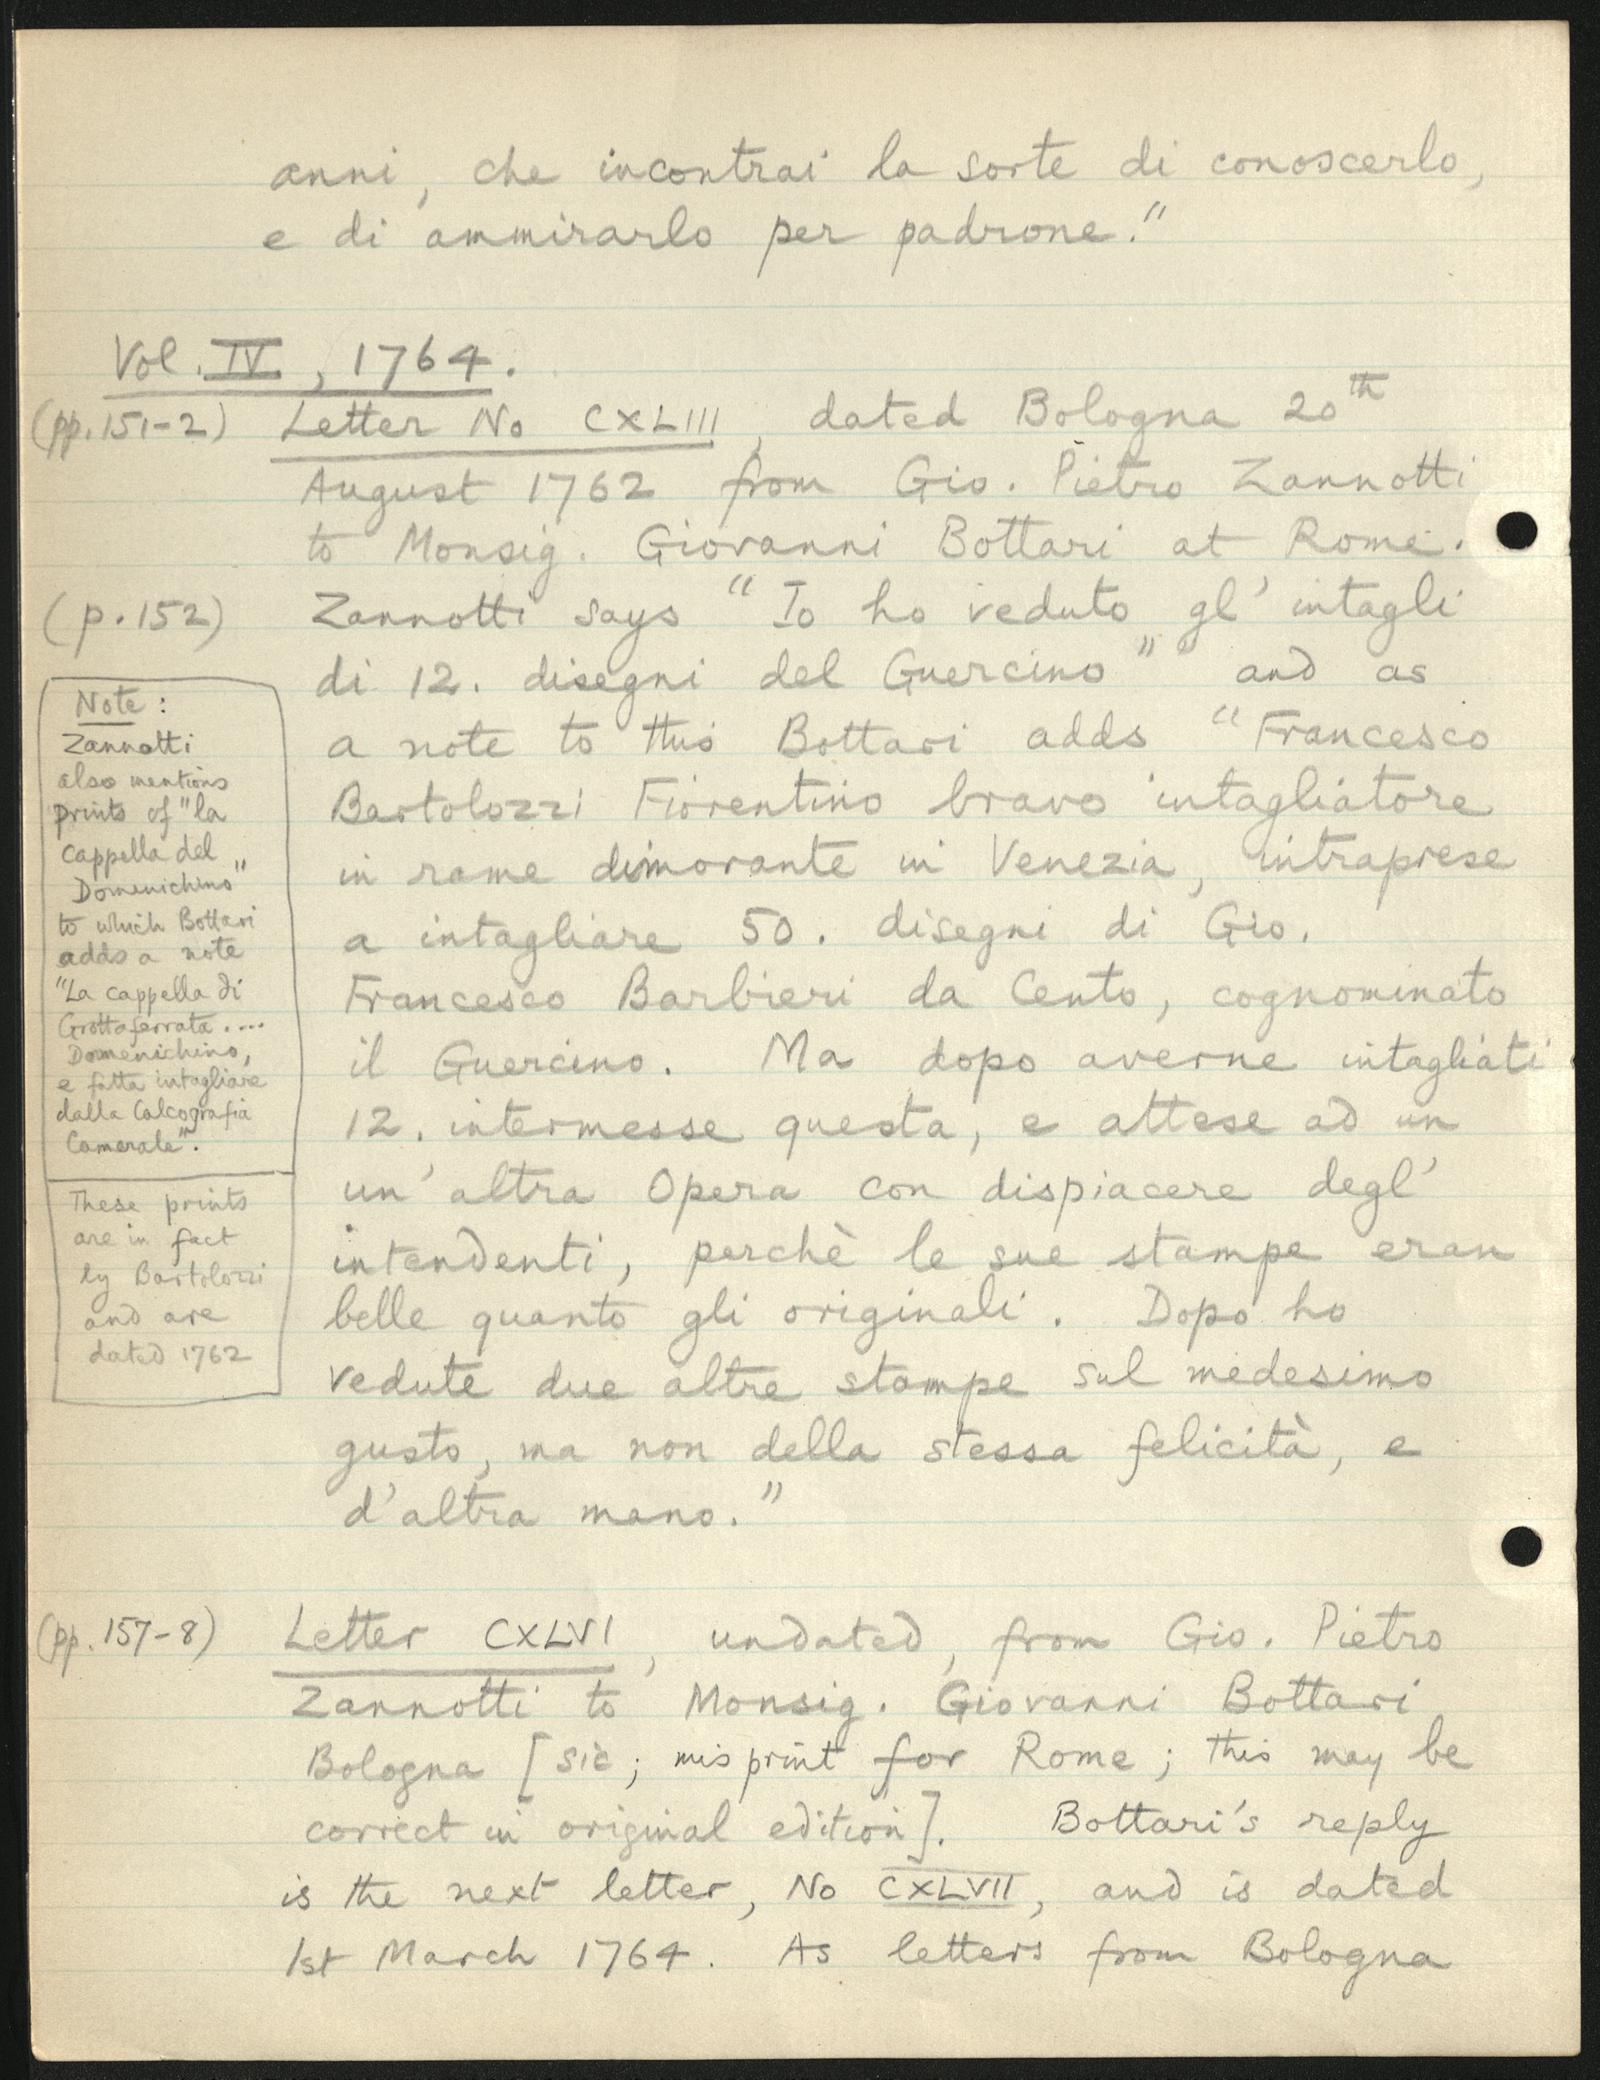 anni, che incontrai la sorte di conoscerlo,
e di ammirarlo per padrone."
Vol. IV, 1764.
(pp. 151-2) Letter No CXLIII, dated Bologna 20th
August 1762 from Gio. Pietro Zannotti
to Monsig. Giovanni Bottari at Rome.
(p. 152) Zannotti says "Io ho veduto gl' intagli
di 12. disegni del Guercino" and as
a note to this Bottari adds "Francesco
Bartolozzi Fiorentino bravo intagliatore
in rame dimorante in Venezia, intraprese
a intagliare 50. disegni di Gio.
Francesco Barbieri da Cento, cognominato
il Guercino. Ma dopo averne intagliati
12. intermesse questa, e attese ad un
un' altra Opera con dispiacere degl'
intendenti, perchè le sue stampe eran
belle quanto gli originali. Dopo ho
vedute due altre stampe sul medesimo
gusto, ma non della stessa felicità, e
d'altra mano."
Note:
Zannotti
also mentions
prints of "la
Cappella del
Domenichino"
to which Bottari
adds a note
"La cappella di
Grottaferrata ....
Domenichino,
e fatta intagliare
dalla Calcografia
Camerale".
These prints
are in fact
by Bartolozzi
and are
dated 1762
(pp. 157-8) Letter CXLVI, undated, from Gio. Pietro
Zannotti to Monsig. Giovanni Bottari
Bologna [sic; misprint for Rome; this may be
correct in original edition]. Bottari's reply
is the next letter, No CXLVII, and is dated
1st March 1764. As letters from Bologna